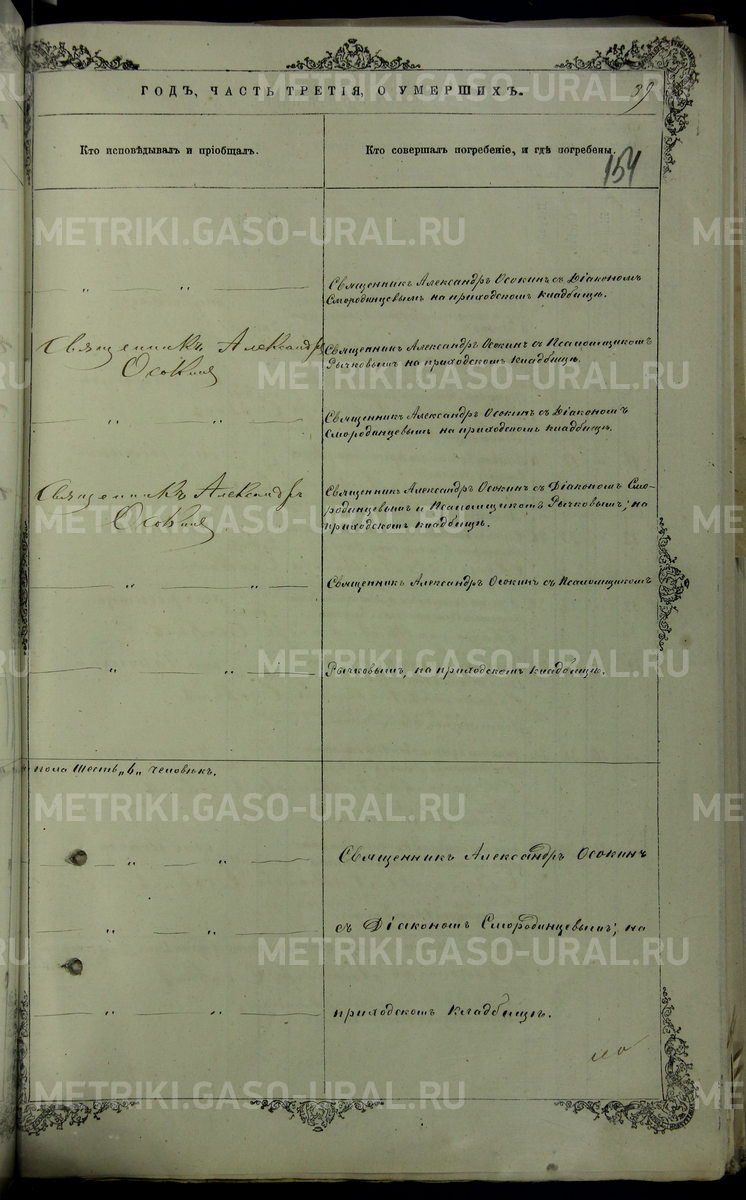 ГОДЪ, ЧАСТЬ ТРЕТІЯ, О УМЕРШИХЪ.
39
Кто исповѣдывалъ и пріобщалъ.
Кто совершалъ погребеніе, и гдѣ погребены.
154
METRIKI.GASO-URAL.RU
„ „
Священникъ Александръ Осокинъ съ Діакономъ
Смородинцевымъ на приходскомъ кладбищѣ.
Священникъ Александръ
Осокинъ
Священникъ Александръ Осокинъ съ Псаломщикомъ
Рычковымъ на приходскомъ кладбищѣ.
„ „
Священникъ Александръ Осокинъ съ Діакономъ
Смородинцевымъ на приходскомъ кладбищѣ.
Священникъ Александръ
Осокинъ
Священникъ Александръ Осокинъ съ Діакономъ Смо-
родинцевымъ и Псаломщикомъ Рычковымъ, на
приходскомъ кладбищѣ.
„ „
Священникъ Александръ Осокинъ съ Псаломщикомъ
„ „
Рычковымъ, на приходскомъ кладбищѣ.
пола шесть „6„ человѣкъ.
„ „
Священникъ Александръ Осокинъ
„ „
съ Діакономъ Смородинцевымъ, на
„ „
приходскомъ кладбищѣ.